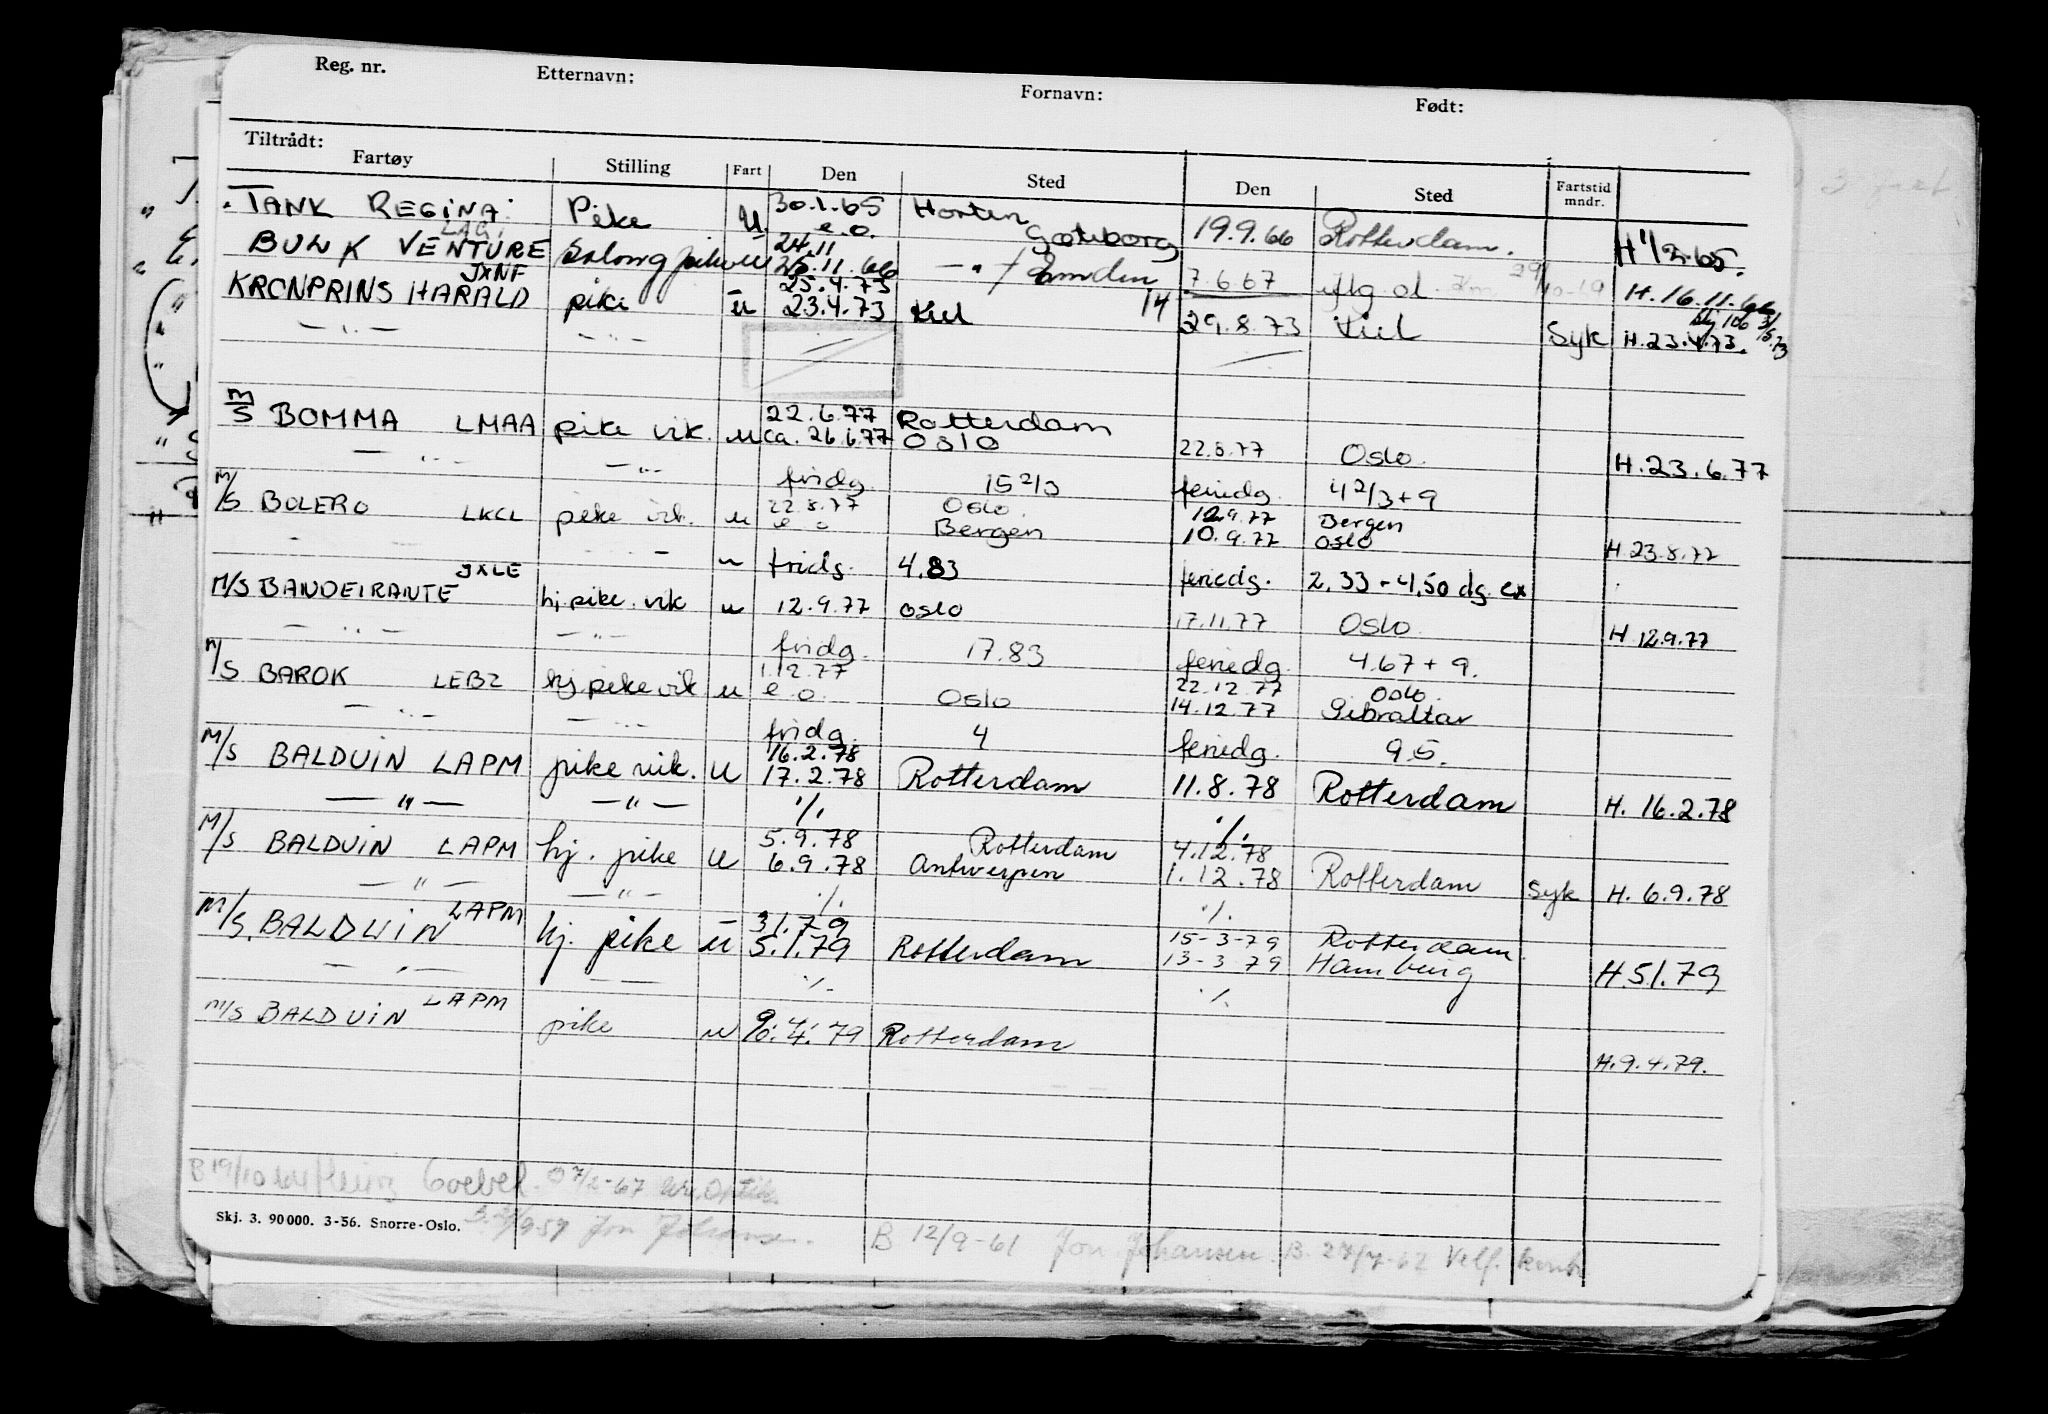 Reg. nr. Etternavn: Fornavn: Født:
Tiltrådt:
Fartøy Stilling Fart Den Sted Den Sted Fartstid mndr.
TANK REGINA Pike u 30.1.65 e.o. Horten Gøteborg 19.9.66 Rotterdam. H 1/2.65.
BULK VENTURE LAG Salongpike u 24.11 25.11.66 — " — / Emden 7.6.67 H. 16.11.66
KRONPRINS HARALD JXNF pike u 25.4.73 23.4.73 Kiel 14 29.8.73 Kiel Syk H.23.4.73.
— " — — " —
M/S BOMMA LMAA pike vik. u 22.6.77 ca. 26.6.77 Rotterdam Oslo 22.8.77 Oslo. H.23.6.77
— " — — " — fridg. 15 2/3 feriedg. 4 2/3 + 9
M/S BOLERO LKCL pike vik. u 22.8.77 e o Oslo. Bergen 12.9.77 10.9.77 Bergen Oslo H 23.8.77
fridg. 4.83 feriedg. 2.33 - 4,50 dg. ex
M/S BANDEIRANTE JXLE hj pike. vik u 12.9.77 Oslo 17.11.77 Oslo. H 12.9.77
— " — — " — fridg. 17.83 feriedg. 4.67 + 9.
M/S BAROK LEBZ hj. pike vik u 1.12.77 e o. Oslo 22.12.77 14.12.77 Oslo. Gibraltar
— " — — " — fridg. 4 feriedg. 9.5.
M/S BALDUIN LAPM pike vik. u 16.2.78 17.2.78 Rotterdam 11.8.78 Rotterdam H. 16.2.78
— " — — " — ./. ./.
M/S BALDUIN LAPM hj. pike u 5.9.78 6.9.78 Rotterdam Antwerpen 4.12.78 1.12.78 Rotterdam Syk H. 6.9.78
— " — — " — ./. ./.
M/S. BALDUIN LAPM hj. pike u 5.1.79 Rotterdam 15-3-79 13-3-79 Rotterdam. Hamburg H 5.1.79
— " — — — ./. ./.
M/S BALDUIN LAPM pike u 4.79 Rotterdam H.9.4.79.
B 19/10 Goebel. 7/2-67
Skj. 3. 90000. 3-56. Snorre-Oslo. Jon Johansen. B 12/9-61 Jon Johansen. B. Velf.